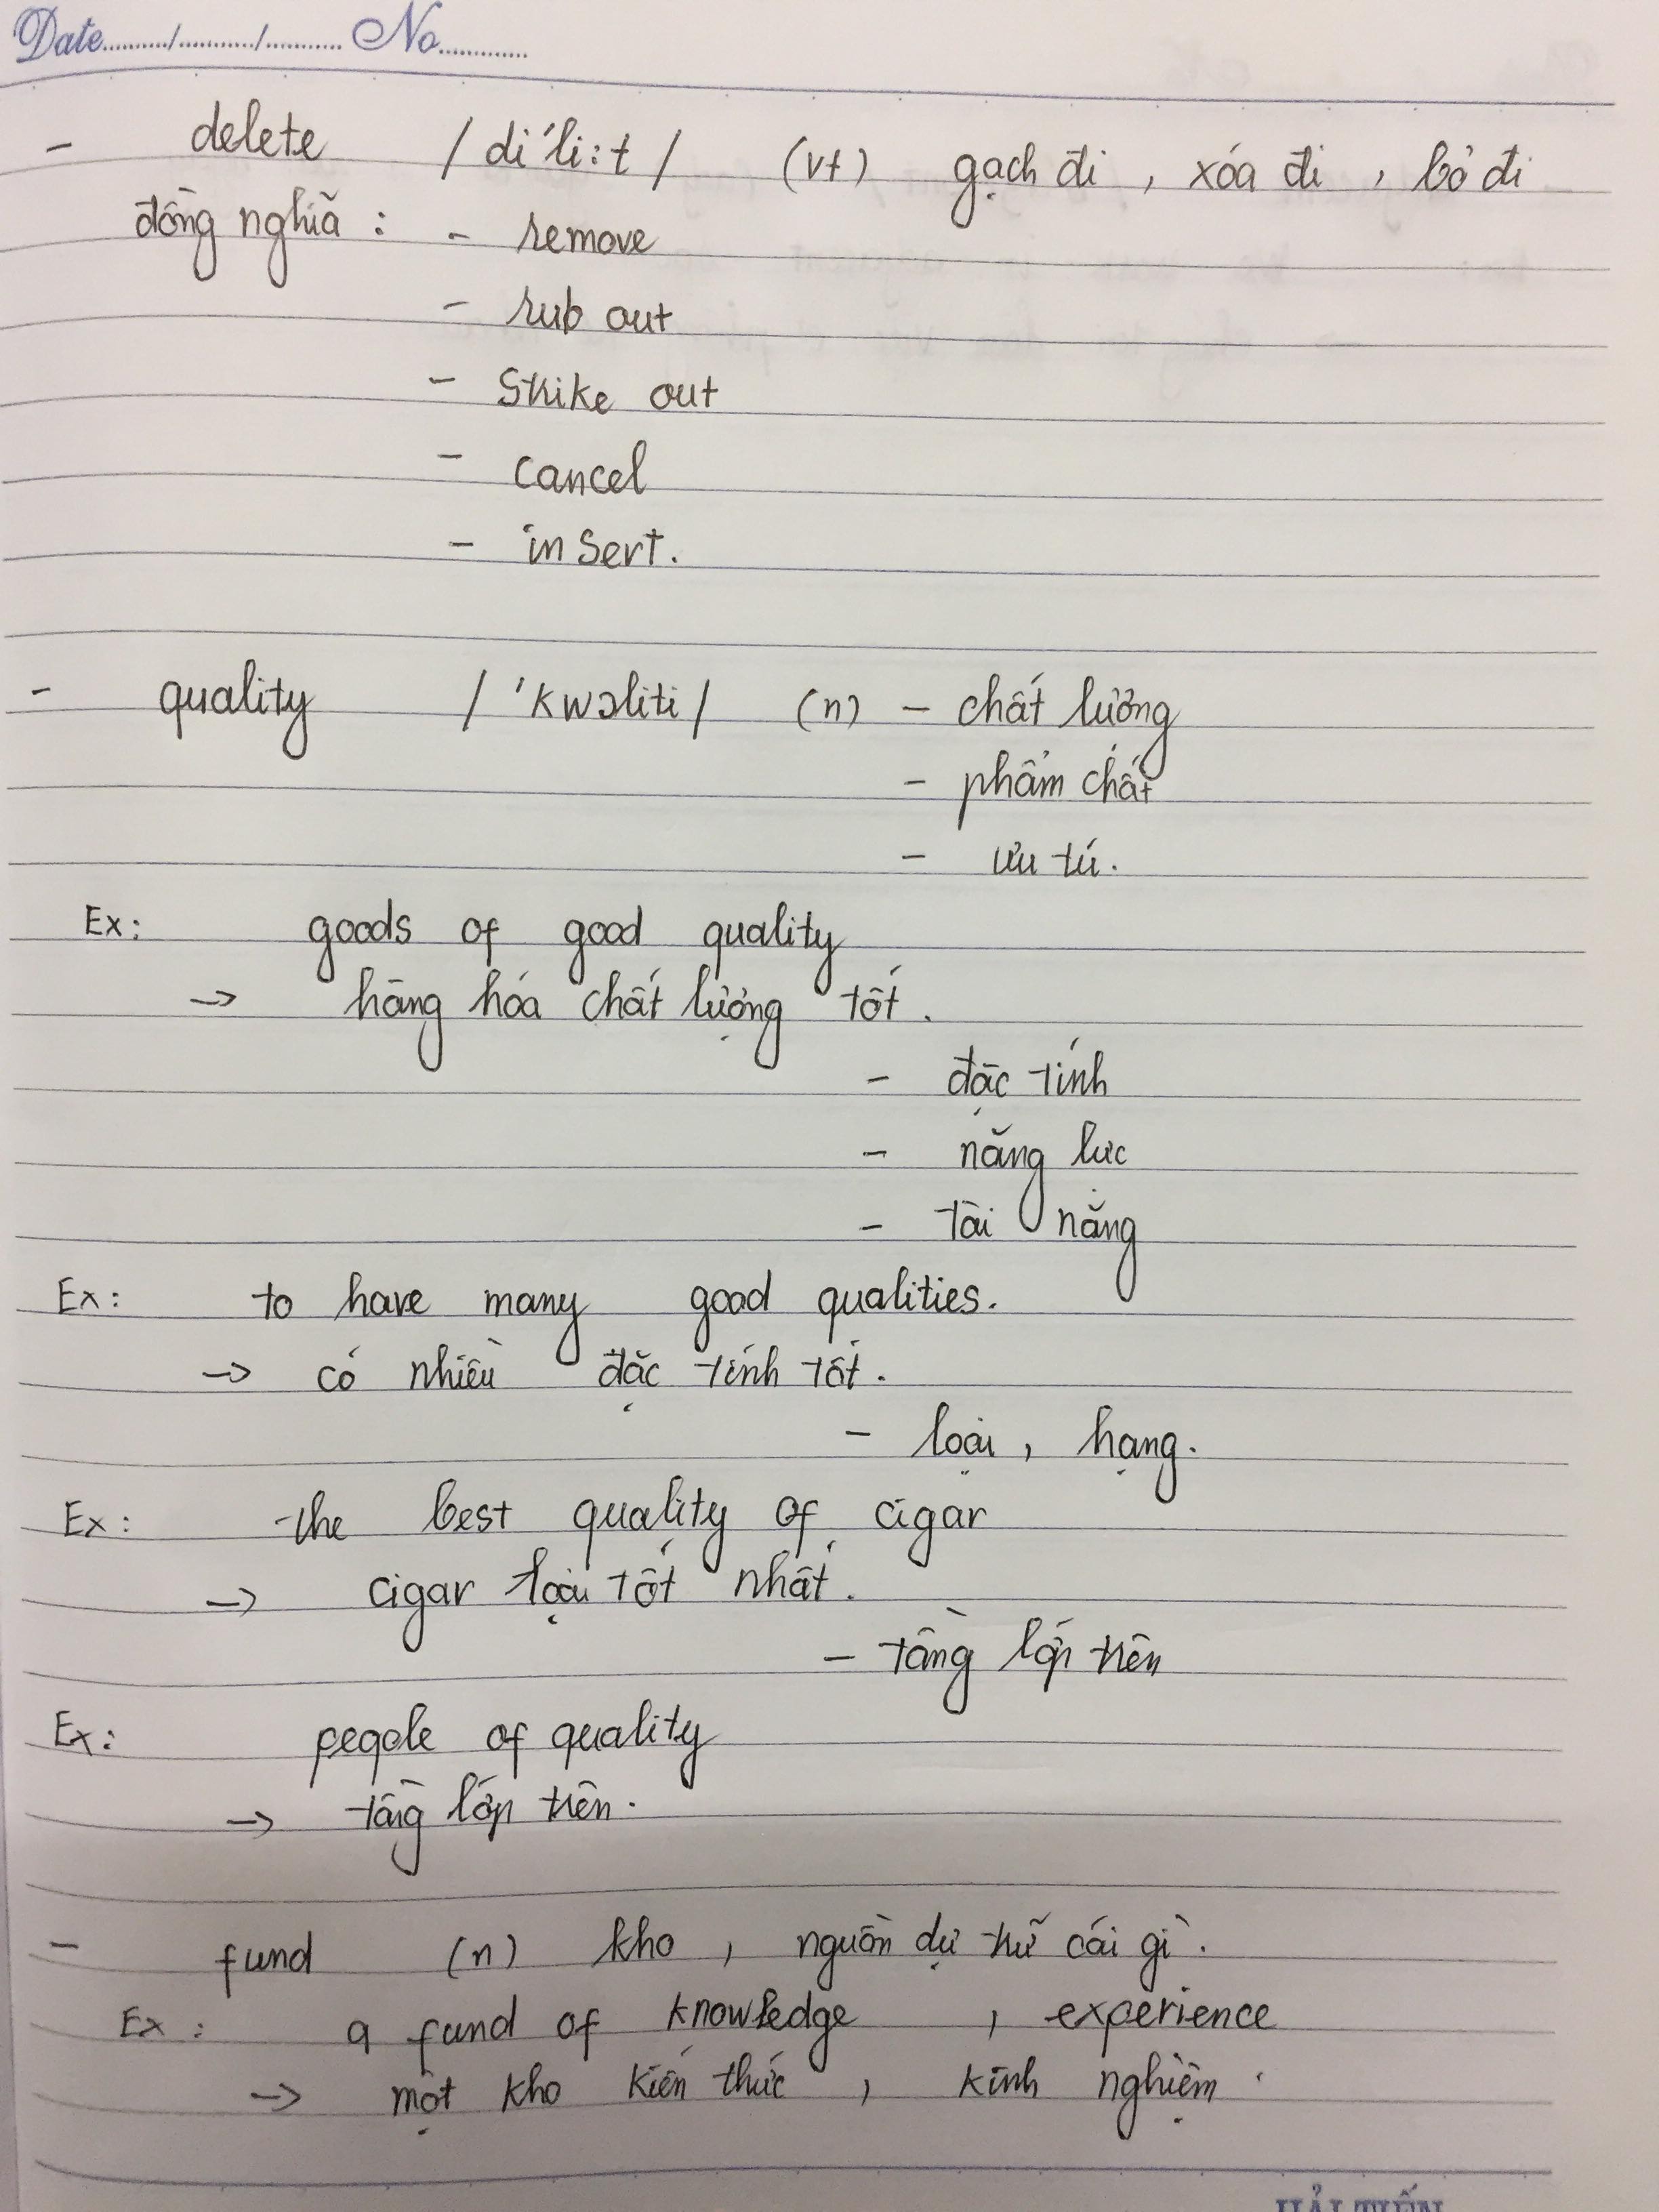 Date........../.........../........... No.............
- delete /di'li:t/ (vt) gạch đi, xóa đi, bỏ đi
đồng nghĩa : - remove
- rub out
- Strike out
- cancel
- insert.
- quality /'kwɔliti/ (n) - chất lượng
- phẩm chất
- ưu tú.
Ex: goods of good quality
→ hàng hóa chất lượng tốt.
- đặc tính
- năng lực
- tài năng
Ex: to have many good qualities.
→ có nhiều đặc tính tốt.
- loại, hạng.
Ex: the best quality of cigar
→ cigar loại tốt nhất.
- tầng lớp trên
Ex: people of quality
→ tầng lớp trên.
- fund (n) kho, nguồn dự trữ cái gì.
Ex: a fund of knowledge, experience
→ một kho kiến thức, kinh nghiệm.
HẢI TIẾN